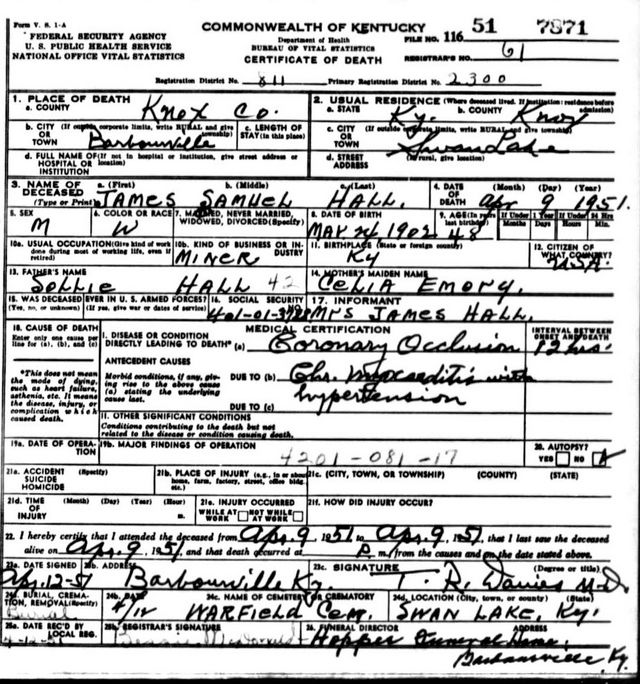 Form V. S. 1-A
FEDERAL SECURITY AGENCY
U. S. PUBLIC HEALTH SERVICE
NATIONAL OFFICE VITAL STATISTICS
COMMONWEALTH OF KENTUCKY
Department of Health
BUREAU OF VITAL STATISTICS
CERTIFICATE OF DEATH
FILE NO. 116 51 7871
REGISTRAR'S NO. 61
Registration District No. 811 Primary Registration District No. 2300
1. PLACE OF DEATH
a. COUNTY Knox Co.
2. USUAL RESIDENCE (Where deceased lived. If institution: residence before admission)
a. STATE Ky. b. COUNTY Knox
b. CITY (If outside corporate limits, write RURAL and give township) OR TOWN Barbourville
c. LENGTH OF STAY (in this place)
c. CITY (If outside corporate limits, write RURAL and give township) OR TOWN Swan Lake
d. FULL NAME OF (If not in hospital or institution, give street address or location) HOSPITAL OR INSTITUTION
d. STREET ADDRESS (If rural, give location)
3. NAME OF DECEASED (Type or Print) a. (First) JAMES b. (Middle) SAMUEL c. (Last) HALL.
4. DATE OF DEATH (Month) (Day) (Year) Apr 9 1951
5. SEX M
6. COLOR OR RACE W
7. MARRIED, NEVER MARRIED, WIDOWED, DIVORCED (Specify)
8. DATE OF BIRTH MAY 24 1902
9. AGE (In years last birthday) 48 If Under 1 Year Months Days If Under 24 Hrs Hours Min.
10a. USUAL OCCUPATION (Give kind of work done during most of working life, even if retired)
10b. KIND OF BUSINESS OR INDUSTRY MINER
11. BIRTHPLACE (State or foreign country) Ky
12. CITIZEN OF WHAT COUNTRY? USA.
13. FATHER'S NAME Sollie HALL 42
14. MOTHER'S MAIDEN NAME CELIA EMORY.
15. WAS DECEASED EVER IN U. S. ARMED FORCES? (Yes, no, or unknown) (If yes, give war or dates of service)
16. SOCIAL SECURITY
17. INFORMANT Mrs JAMES HALL.
18. CAUSE OF DEATH
Enter only one cause per line for (a), (b), and (c)
MEDICAL CERTIFICATION
INTERVAL BETWEEN ONSET AND DEATH
I. DISEASE OR CONDITION DIRECTLY LEADING TO DEATH* (a) Coronary Occlusion 12 hrs.
*This does not mean the mode of dying, such as heart failure, asthenia, etc. It means the disease, injury, or complication which caused death.
ANTECEDENT CAUSES
Morbid conditions, if any, giving rise to the above cause (a) stating the underlying cause last.
DUE TO (b) Chr. Myocarditis with
DUE TO (c) hypertension
II. OTHER SIGNIFICANT CONDITIONS
Conditions contributing to the death but not related to the disease or condition causing death.
19a. DATE OF OPERATION
19b. MAJOR FINDINGS OF OPERATION
4201-081-17
20. AUTOPSY? YES NO
21a. ACCIDENT SUICIDE HOMICIDE (Specify)
21b. PLACE OF INJURY (e.g., in or about home, farm, factory, street, office bldg. etc.)
21c. (CITY, TOWN, OR TOWNSHIP) (COUNTY) (STATE)
21d. TIME OF INJURY (Month) (Day) (Year) (Hour) m.
21e. INJURY OCCURRED WHILE AT WORK NOT WHILE AT WORK
21f. HOW DID INJURY OCCUR?
22. I hereby certify that I attended the deceased from Apr 9, 1951 to Apr. 9, 1951, that I last saw the deceased
alive on Apr. 9, 1951 and that death occurred at P. m., from the causes and on the date stated above.
23a. DATE SIGNED Apr. 12-51
23b. ADDRESS Barbourville Ky.
23c. SIGNATURE (Degree or title) T. R. Davies M.D.
24a. BURIAL, CREMATION, REMOVAL (Specify) Burial
24b. DATE 4/12
24c. NAME OF CEMETERY OR CREMATORY WARFIELD Cem.
24d. LOCATION (City, town, or county) (State) SWAN LAKE, Ky.
25a. DATE REC'D BY LOCAL REG. 4-12-51
25b. REGISTRAR'S SIGNATURE
26. FUNERAL DIRECTOR ADDRESS Hopper Funeral Home,
Barbourville, Ky.